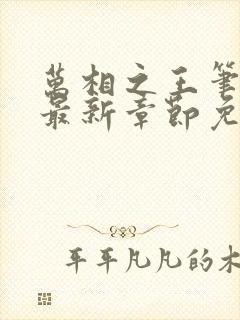 萬相之王筆
最新章節免
平平凡凡的木